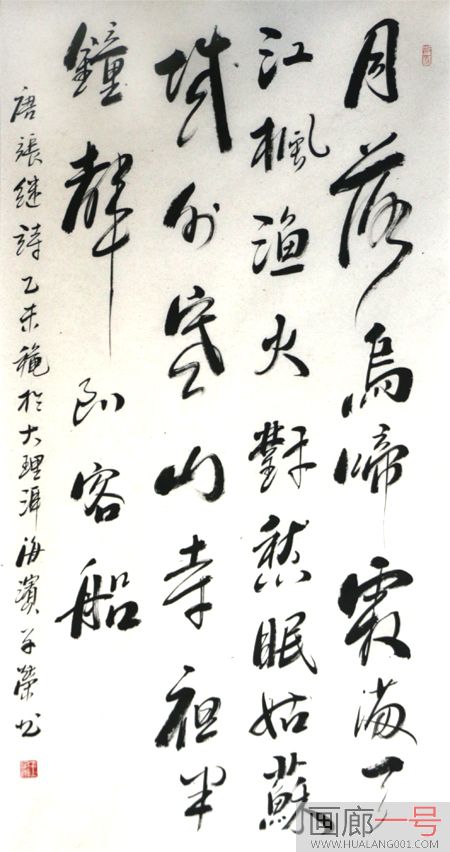 月落烏啼霜滿天
江楓渔火對愁眠姑蘇
城外寒山寺夜半
鐘聲到客船
唐張继詩乙未穐於大理洱海濱榮书
画廊一号
WWW.HUALANG001.COM